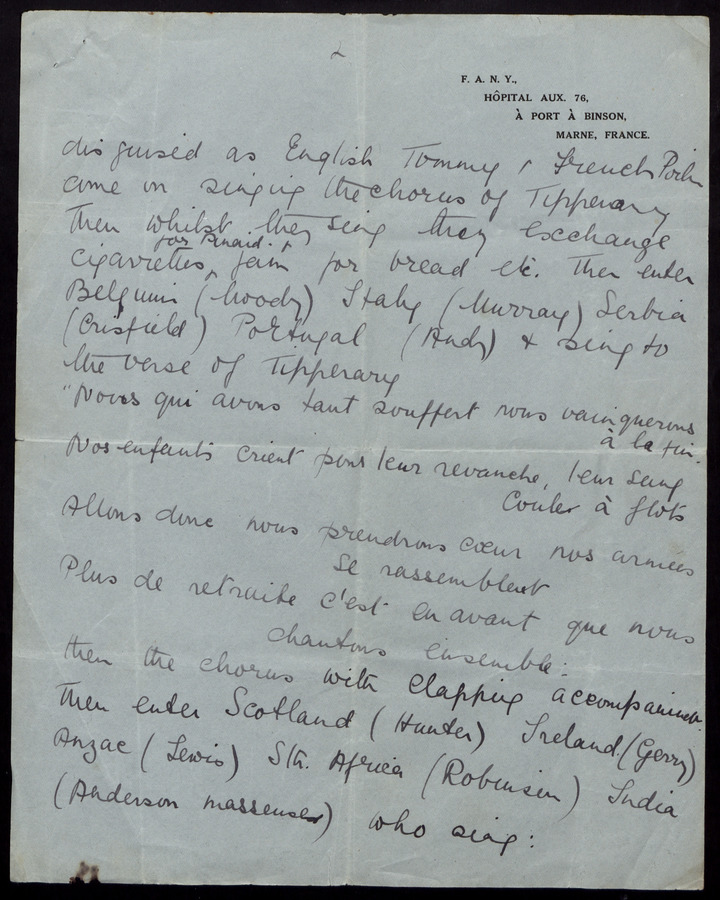 2
F. A. N. Y.,
HÔPITAL AUX. 76,
À PORT À BINSON,
MARNE, FRANCE.
disguised as English Tommy & French Poilu
come on singing the chorus of Tipperary
Then whilst they sing they exchange
for Pinard. &
cigarettes, jam for bread etc. Then enter
Belgium (Moody) Italy (Murray) Serbia
(Crisfield) Portugal (Andy) & sing to
the verse of Tipperary
"Nous qui avons tant souffert nous vainquerons
à la fin.
Nos enfants crient pour leur revanche, leur sang
Couler à flots
Allons donc nous prendrons cœur nos armées
Se rassemblent
Plus de retraite c'est en avant que nous
chantons ensemble:
then the chorus with clapping accompaniment.
Then enter Scotland (Hunter) Ireland (Gerry)
Anzac (Lewis) Sth. Africa (Robinson) India
(Anderson masseuse) who sing: